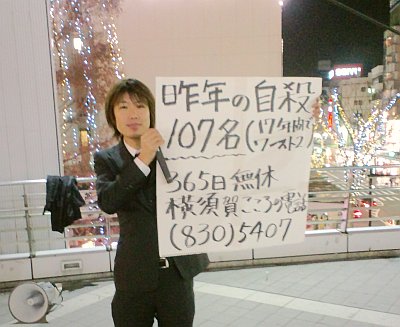 昨年の自殺
107名(17年間でワースト2)
365日無休
横須賀こころの電話
(830)5407